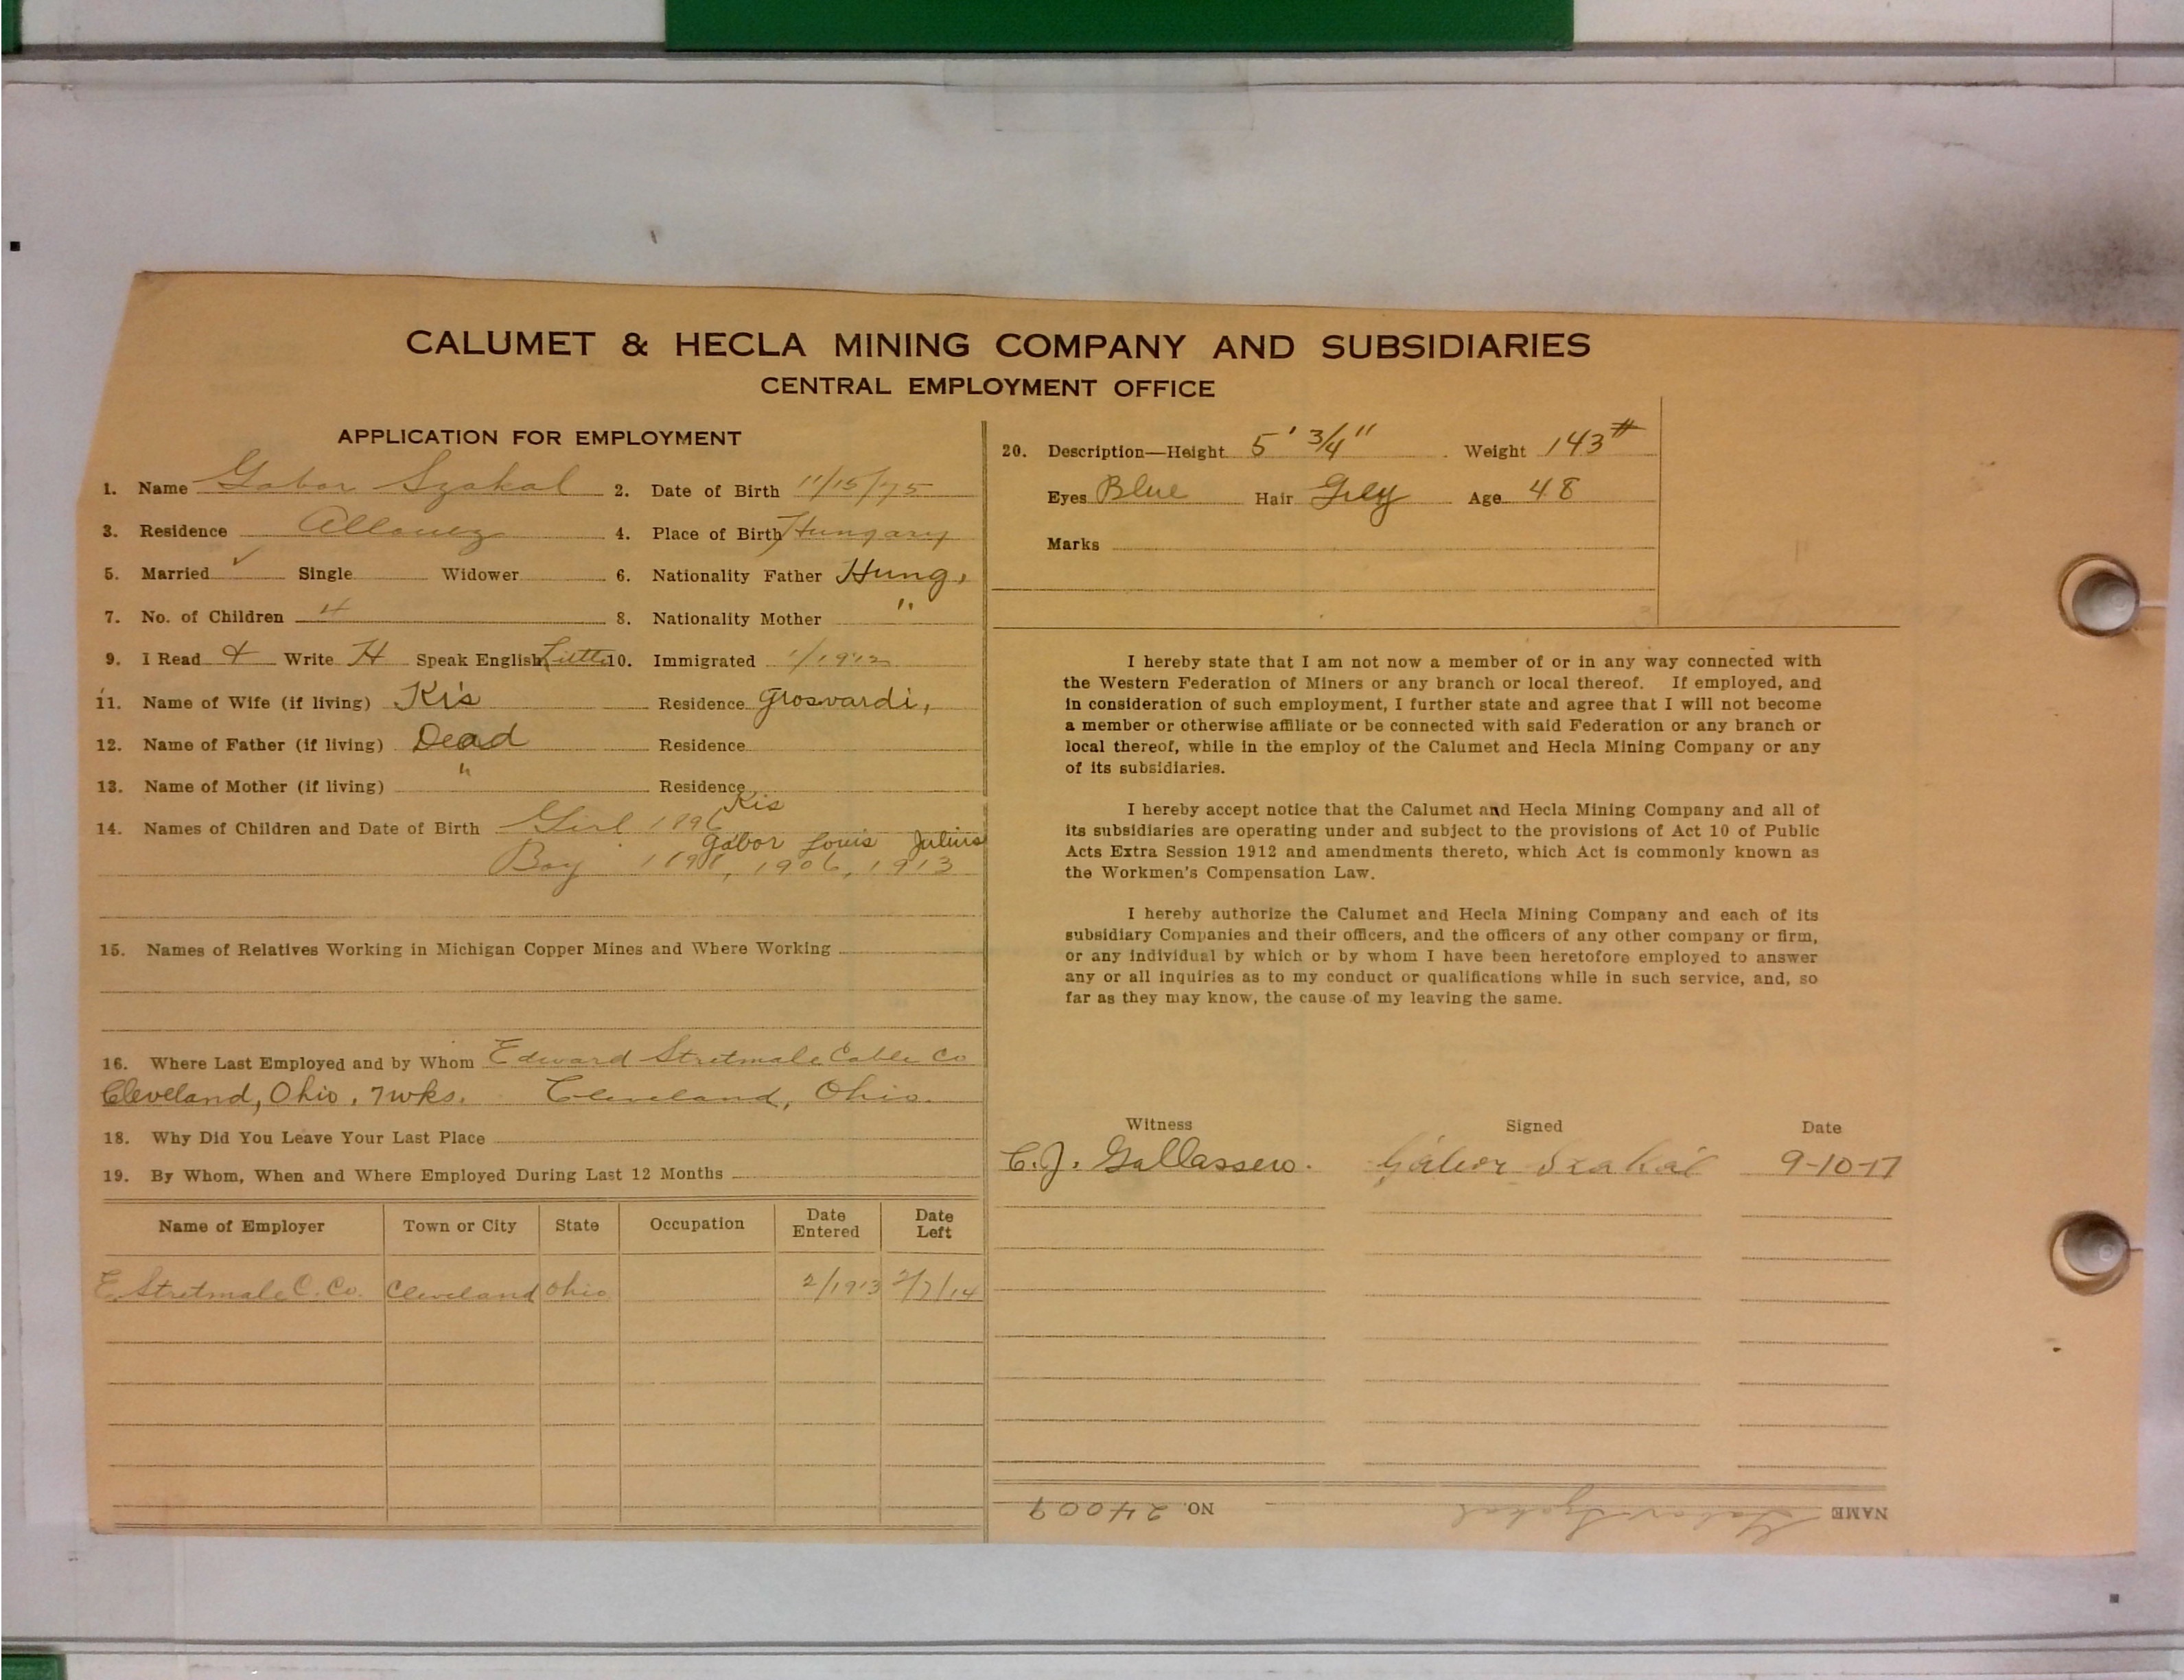 CALUMET & HECLA MINING COMPANY AND SUBSIDIARIES
CENTRAL EMPLOYMENT OFFICE
APPLICATION FOR EMPLOYMENT
1. Name Gabor Szakal 2. Date of Birth 11/15/75
3. Residence Allouez 4. Place of Birth Hungary
5. Married ✓ Single Widower 6. Nationality Father Hung.
7. No. of Children 4 8. Nationality Mother "
9. I Read Write H Speak English Little 10. Immigrated 1/1912
11. Name of Wife (if living) Kis Residence Grosvardi,
12. Name of Father (if living) Dead Residence
13. Name of Mother (if living) " Residence
Kis
14. Names of Children and Date of Birth Girl 1896
Gábor Louis Julius
Boy 1898, 1906, 1913
15. Names of Relatives Working in Michigan Copper Mines and Where Working
16. Where Last Employed and by Whom Edward Stretmale Cable Co
Cleveland, Ohio, 7wks. Cleveland, Ohio.
18. Why Did You Leave Your Last Place
19. By Whom, When and Where Employed During Last 12 Months
Name of Employer Town or City State Occupation Date Entered Date Left
E. Stretmale C. Co. Cleveland Ohio 2/1913 2/7/14
20. Description—Height 5' 3/4" Weight 143#
Eyes Blue Hair Grey Age 48
Marks
I hereby state that I am not now a member of or in any way connected with
the Western Federation of Miners or any branch or local thereof. If employed, and
in consideration of such employment, I further state and agree that I will not become
a member or otherwise affiliate or be connected with said Federation or any branch or
local thereof, while in the employ of the Calumet and Hecla Mining Company or any
of its subsidiaries.
I hereby accept notice that the Calumet and Hecla Mining Company and all of
its subsidiaries are operating under and subject to the provisions of Act 10 of Public
Acts Extra Session 1912 and amendments thereto, which Act is commonly known as
the Workmen's Compensation Law.
I hereby authorize the Calumet and Hecla Mining Company and each of its
subsidiary Companies and their officers, and the officers of any other company or firm,
or any individual by which or by whom I have been heretofore employed to answer
any or all inquiries as to my conduct or qualifications while in such service, and, so
far as they may know, the cause of my leaving the same.
Witness Signed Date
C.J. Gallassero. Gábor Szakál 9-10-17
NAME Gabor Szakal NO. 24009